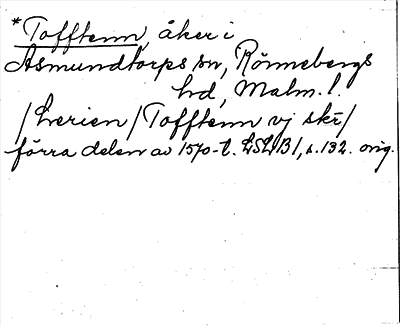 *Tofftenn, åker i
Asmundtorps sn, Rönnebergs
hd, Malm. l.
/Lerien/Tofftenn vj skr/
förra delen av 1570-t. LSLB1, s. 132. orig.